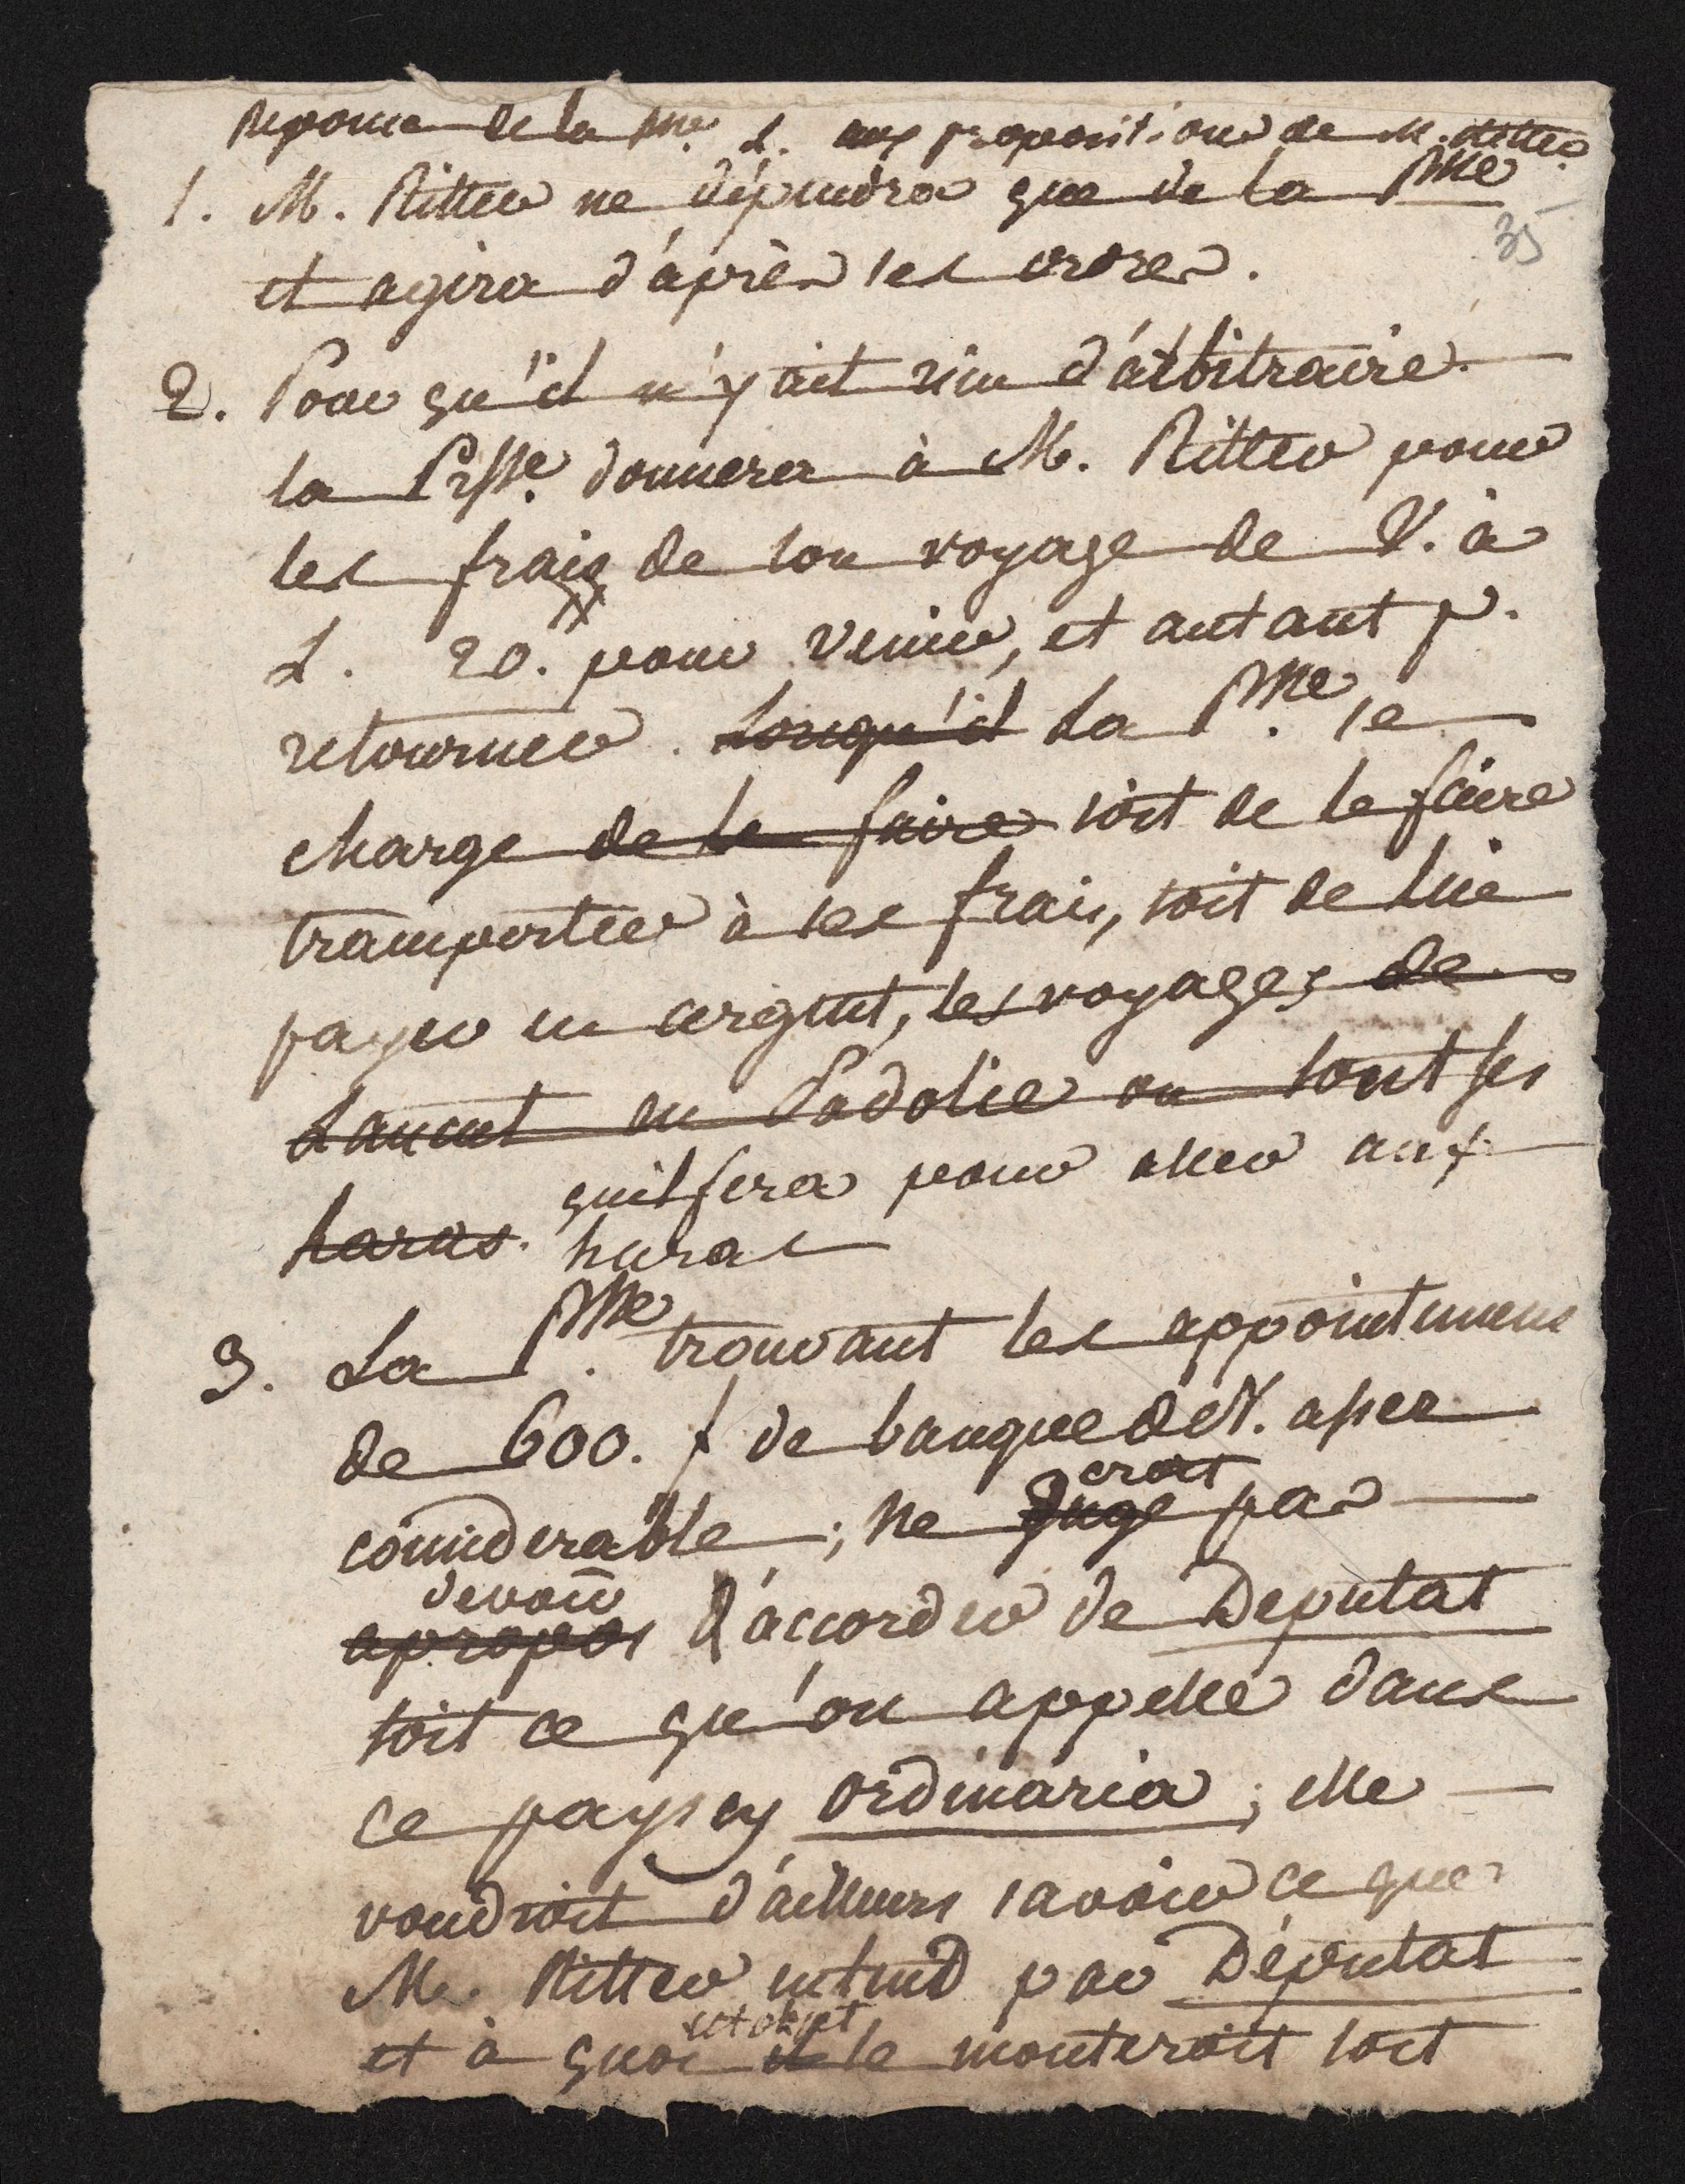 Reponse de la Psse. L. aux propositions de M. Ritter.
1. M. Ritter ne dépendra que de la Psse
35
et agira d'après ses ordres.
2. Pour qu'il n'y ait rien d'arbitraire
la Prsse. donnera à M. Ritter pour
les frais de son voyage de V. à
L. 20. pour venir, et autant p.
retourner. Lorsqu'il La Psse. se
charge de le faire soit de le faire
transporter à ses frais, soit de lui
payer en argent, les voyages de
Lancut en Podolie ou sont ses
quil fera pour aller aux
haras. haras
3. La Psse. trouvant les appointemens
de 600. f de banque de V. assez
considerable ; ne juge croit pas
devoir
apropos d'accorder de Deputat
soit ce qu'on appelle dans
ce pays cy ordinaria ; elle
voudroit d'ailleurs savoir ce que
M. Ritter entend par Députat
cet objet
et à quoi il se monteroit soit